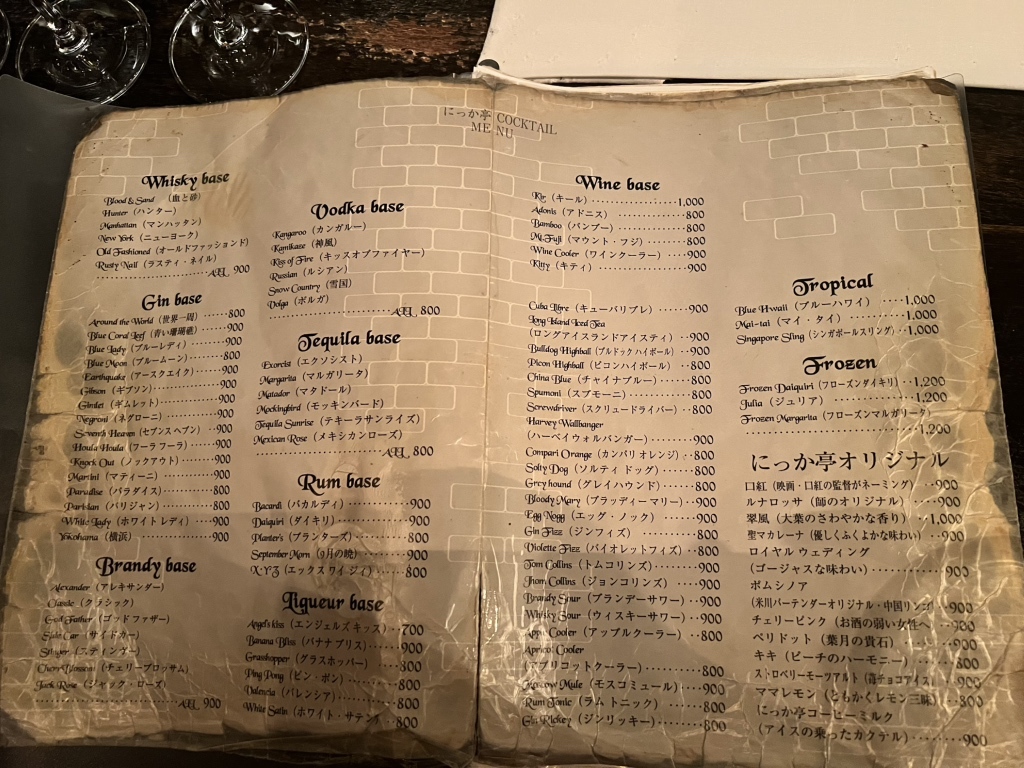 にっか亭 COCKTAIL
MENU
Whisky base
Blood & Sand （血と砂）
Hunter （ハンター）
Manhattan （マンハッタン）
New York （ニューヨーク）
Old Fashioned （オールドファッションド）
Rusty Nail （ラスティ・ネイル）
ALL 900
Gin base
Around the World （世界一周） 800
Blue Coral Leef （青い珊瑚礁） 900
Blue Lady （ブルーレディ） 900
Blue Moon （ブルームーン） 800
Earthquake （アースクエイク） 900
Gibson （ギブソン） 900
Gimlet （ギムレット） 900
Negroni （ネグローニ） 900
Seventh Heaven （セブンスヘブン） 900
Houla Houla （フーラフーラ） 900
Knock Out （ノックアウト） 900
Martini （マティーニ） 900
Paradise （パラダイス） 800
Parisian （パリジャン） 800
White Lady （ホワイトレディ） 900
Yokohama （横浜） 900
Brandy base
Alexander （アレキサンダー）
Classic （クラシック）
God Father （ゴッドファザー）
Side Car （サイドカー）
（スティンガー）
Cherry Blossom （チェリーブロッサム）
Jack Rose （ジャック・ローズ）
ALL 900
Vodka base
Kangaroo （カンガルー）
Kamikaze （神風）
Kiss of Fire （キッスオブファイヤー）
Russian （ルシアン）
Snow Country （雪国）
Volga （ボルガ）
ALL 800
Tequila base
Exorcist （エクソシスト）
Margarita （マルガリータ）
Matador （マタドール）
Mockingbird （モッキンバード）
Tequila Sunrise （テキーラサンライズ）
Mexican Rose （メキシカンローズ）
ALL 800
Rum base
Bacardi （バカルディ） 900
Daiquiri （ダイキリ） 900
Planter's （プランターズ） 800
September Morn （9月の暁） 900
X・Y・Z （エックスワイジィ） 800
Liqueur base
Angel's kiss （エンジェルズキッス） 700
Banana Bliss （バナナブリス） 900
Grasshopper （グラスホッパー） 800
Ping Pong （ピン・ポン） 800
Valencia （バレンシア） 800
White Satin （ホワイト・サテン） 800
Wine base
Kir （キール） 1,000
Adonis （アドニス） 800
Bamboo （バンブー） 800
Mt.Fuji （マウント・フジ） 800
Wine Cooler （ワインクーラー） 900
Kitty （キティ） 900
Cuba Libre （キューバリブレ） 900
Long Island Iced Tea
（ロングアイランドアイスティ） 900
Bulldog Highball （ブルドックハイボール） 900
Picon Highball （ピコンハイボール） 800
China Blue （チャイナブルー） 800
Spumoni （スプモーニ） 800
Screwdriver （スクリュードライバー） 800
Harvey Wallbanger
（ハーベイウォルバンガー） 900
Compari Orange （カンパリオレンジ） 800
Solty Dog （ソルティドッグ） 800
Grey hound （グレイハウンド） 800
Bloody Mary （ブラッディーマリー） 900
Egg Nogg （エッグ・ノック） 900
Gin Fizz （ジンフィズ） 800
Violette Fizz （バイオレットフィズ） 800
Tom Collins （トムコリンズ） 900
Jhom Collins （ジョンコリンズ） 900
Brandy Sour （ブランデーサワー） 900
Whisky Sour （ウィスキーサワー） 900
Cooler （アップルクーラー） 800
Apricot Cooler
（アプリコットクーラー） 800
Mule （モスコミュール） 900
Rum Tonic （ラムトニック） 800
Gin Rickey （ジンリッキー） 800
Tropical
Blue Hwaii （ブルーハワイ） 1,000
Mai-tai （マイ・タイ） 1,000
Singapore Sling （シンガポールスリング） 1,000
Frozen
Frozen Daiquiri （フローズンダイキリ） 1,200
Julia （ジュリア） 1,200
Frozen Margarita （フローズンマルガリータ）
1,200
にっか亭オリジナル
口紅（映画・口紅の監督がネーミング） 900
ルナロッサ（師のオリジナル） 900
翠風（大葉のさわやかな香り） 1,000
聖マカレーナ（優しくふくよかな味わい） 900
ロイヤルウェディング
（ゴージャスな味わい） 900
ポムシノア
（米川バーテンダーオリジナル・中国リンゴ） 900
チェリーピンク（お酒の弱い女性へ 900
ペリドット（葉月の貴石） 900
キキ（ピーチのハーモニー） 800
ストロベリーモーツアルト（苺チョコアイス） 900
ママレモン（ともかくレモン三昧） 800
にっか亭コーヒーミルク
（アイスの乗ったカクテル） 900